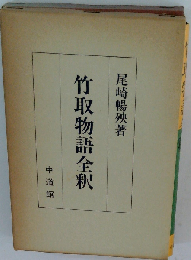 尾崎暢殃著
竹取物語全釈
中道館